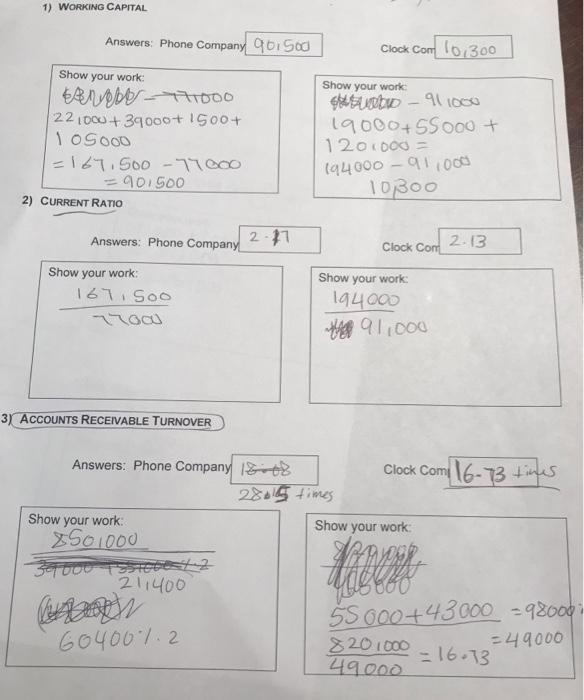 1) WORKING CAPITAL
Answers: Phone Company 90,500
Clock Com 10,300
Show your work:
- 77,000
22,000 + 39000 + 1500 +
105000
= 167,500 - 77000
= 90,500
Show your work:
- 91,000
19000 + 55000 +
120,000 =
194000 - 91,000
10,300
2) CURRENT RATIO
Answers: Phone Company 2.17
Clock Com 2.13
Show your work:
167,500
77000
Show your work:
194000
91,000
3) ACCOUNTS RECEIVABLE TURNOVER
Answers: Phone Company 18.08
28.15 times
Clock Com 16.73 times
Show your work:
850,000
21,400
60400 /. 2
Show your work:
55000 + 43000 = 98000
= 49000
820,000
49000
= 16.73